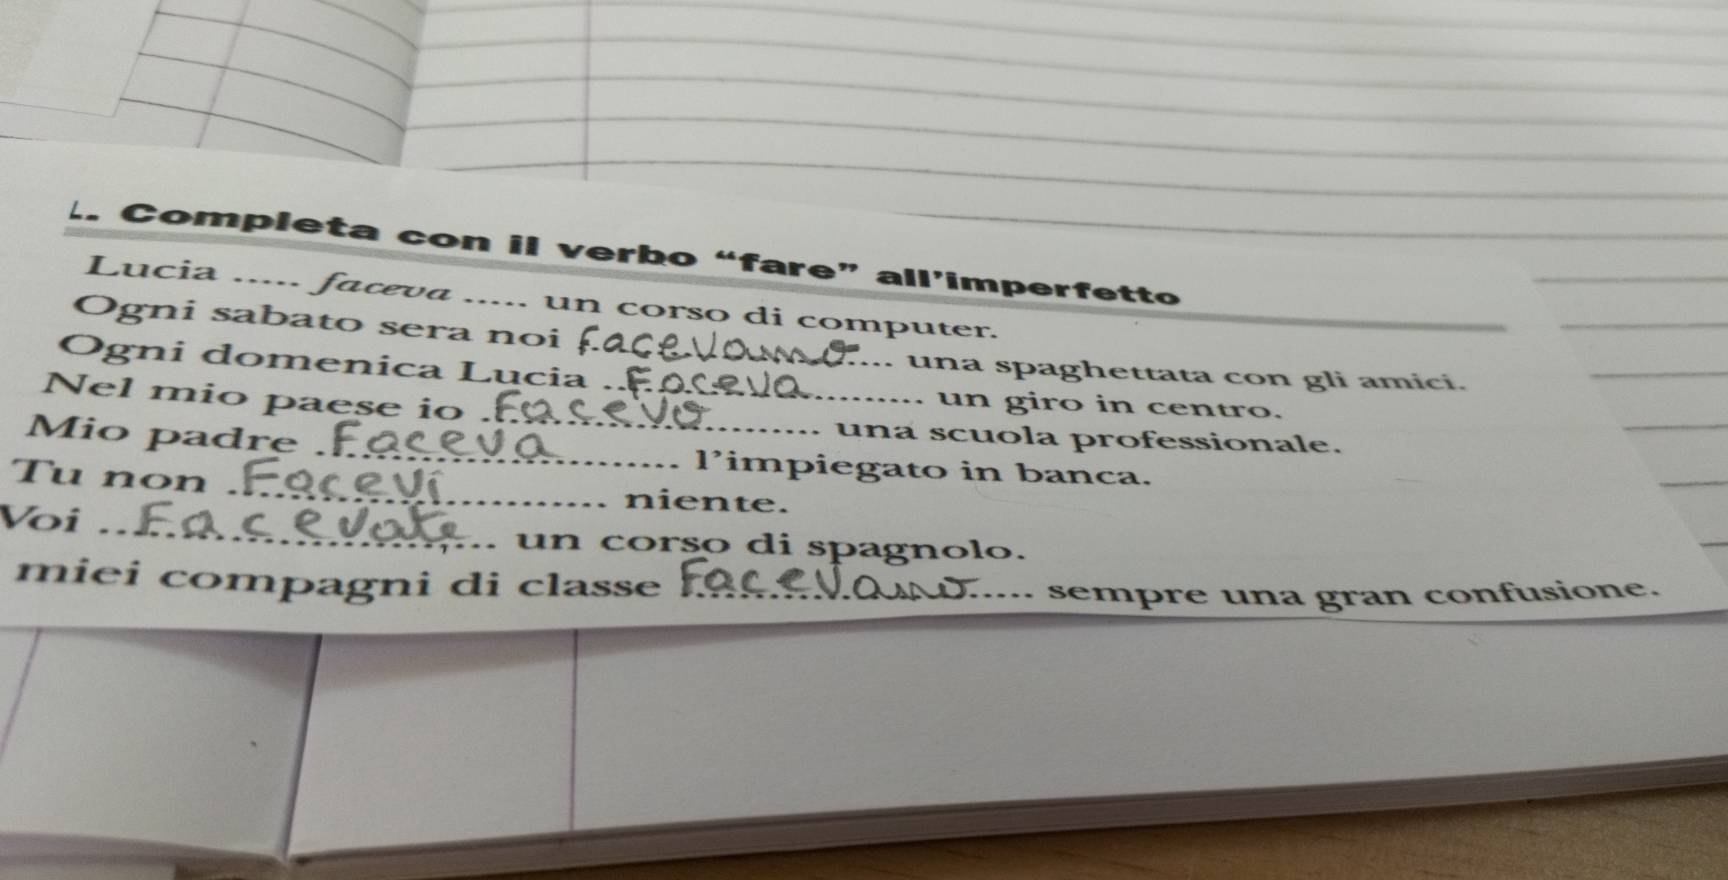 . Completa con il verbo “fare” all’imperfetto
Lucia ..... faceva ..... un corso di computer.
Ogni sabato sera noi facevamo.... una spaghettata con gli amici.
Ogni domenica Lucia ..Faceva......... un giro in centro.
Nel mio paese io .Facevo......... una scuola professionale.
Mio padre .Faceva.......... l’impiegato in banca.
Tu non .Facevi........... niente.
Voi ..Facevate.... un corso di spagnolo.
miei compagni di classe Facevamo..... sempre una gran confusione.